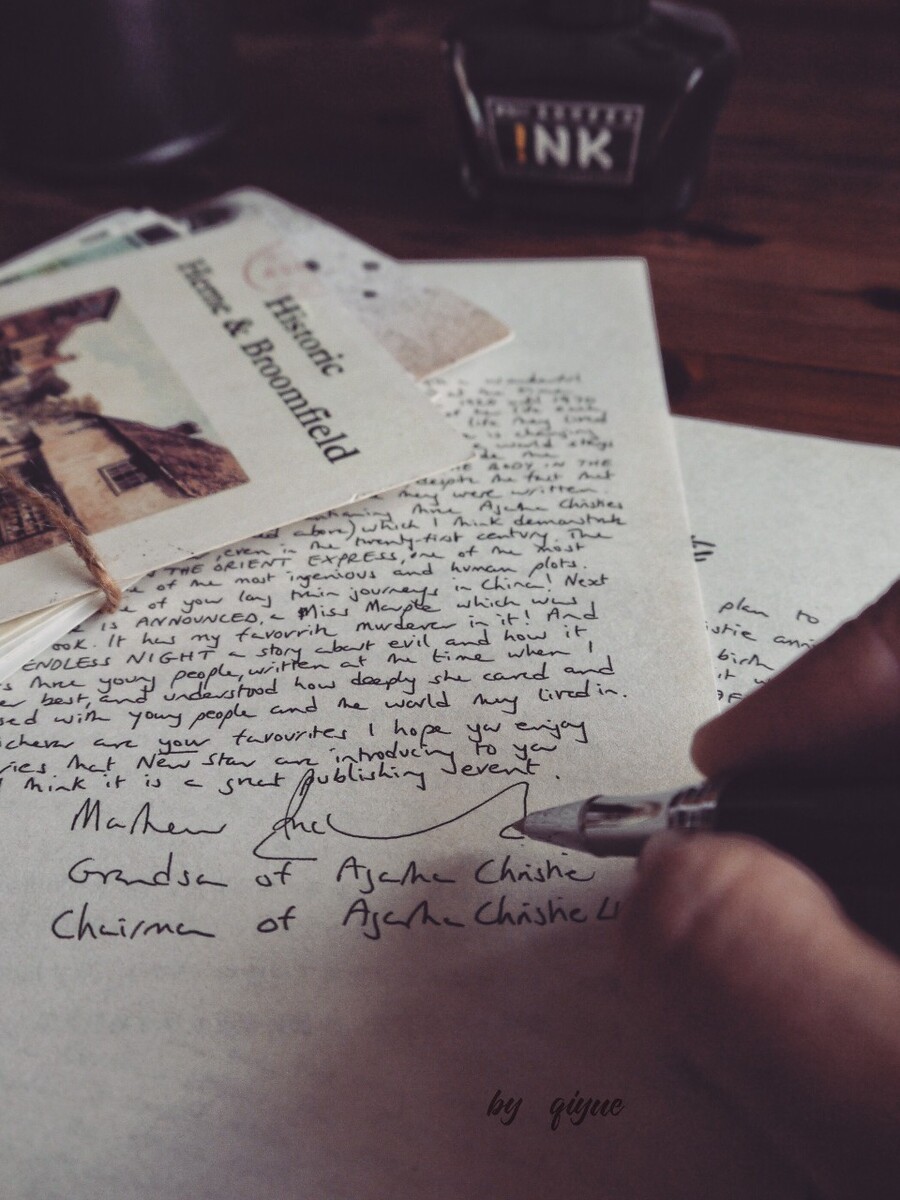 INK
Historic
Herne & Broomfield
a wonderful
at the time
1920 until 1970
of her life each
life they lived
is changing
a world stays
de me
THE BODY IN THE
despite the fact that
they were written.
three Agatha Christies
ed above) which I think demonstrate
, even in the twenty-first century. The
THE ORIENT EXPRESS, one of the most
e of the most ingenious and human plots.
e of your long train journeys in China! Next
IS ANNOUNCED, a Miss Marple which was
ook. It has my favourite murderer in it! And
ENDLESS NIGHT a story about evil and how it
s three young people, written at the time when I
er best, and understood how deeply she cared and
sed with young people and the world they lived in.
ichever are your favourites I hope you enjoy
ries that New Star are introducing to you
I think it is a great publishing event.
Mathew
Grandson of Agatha Christie
Chairman of Agatha Christie L
plan to
stie anni
birth
by qiyue